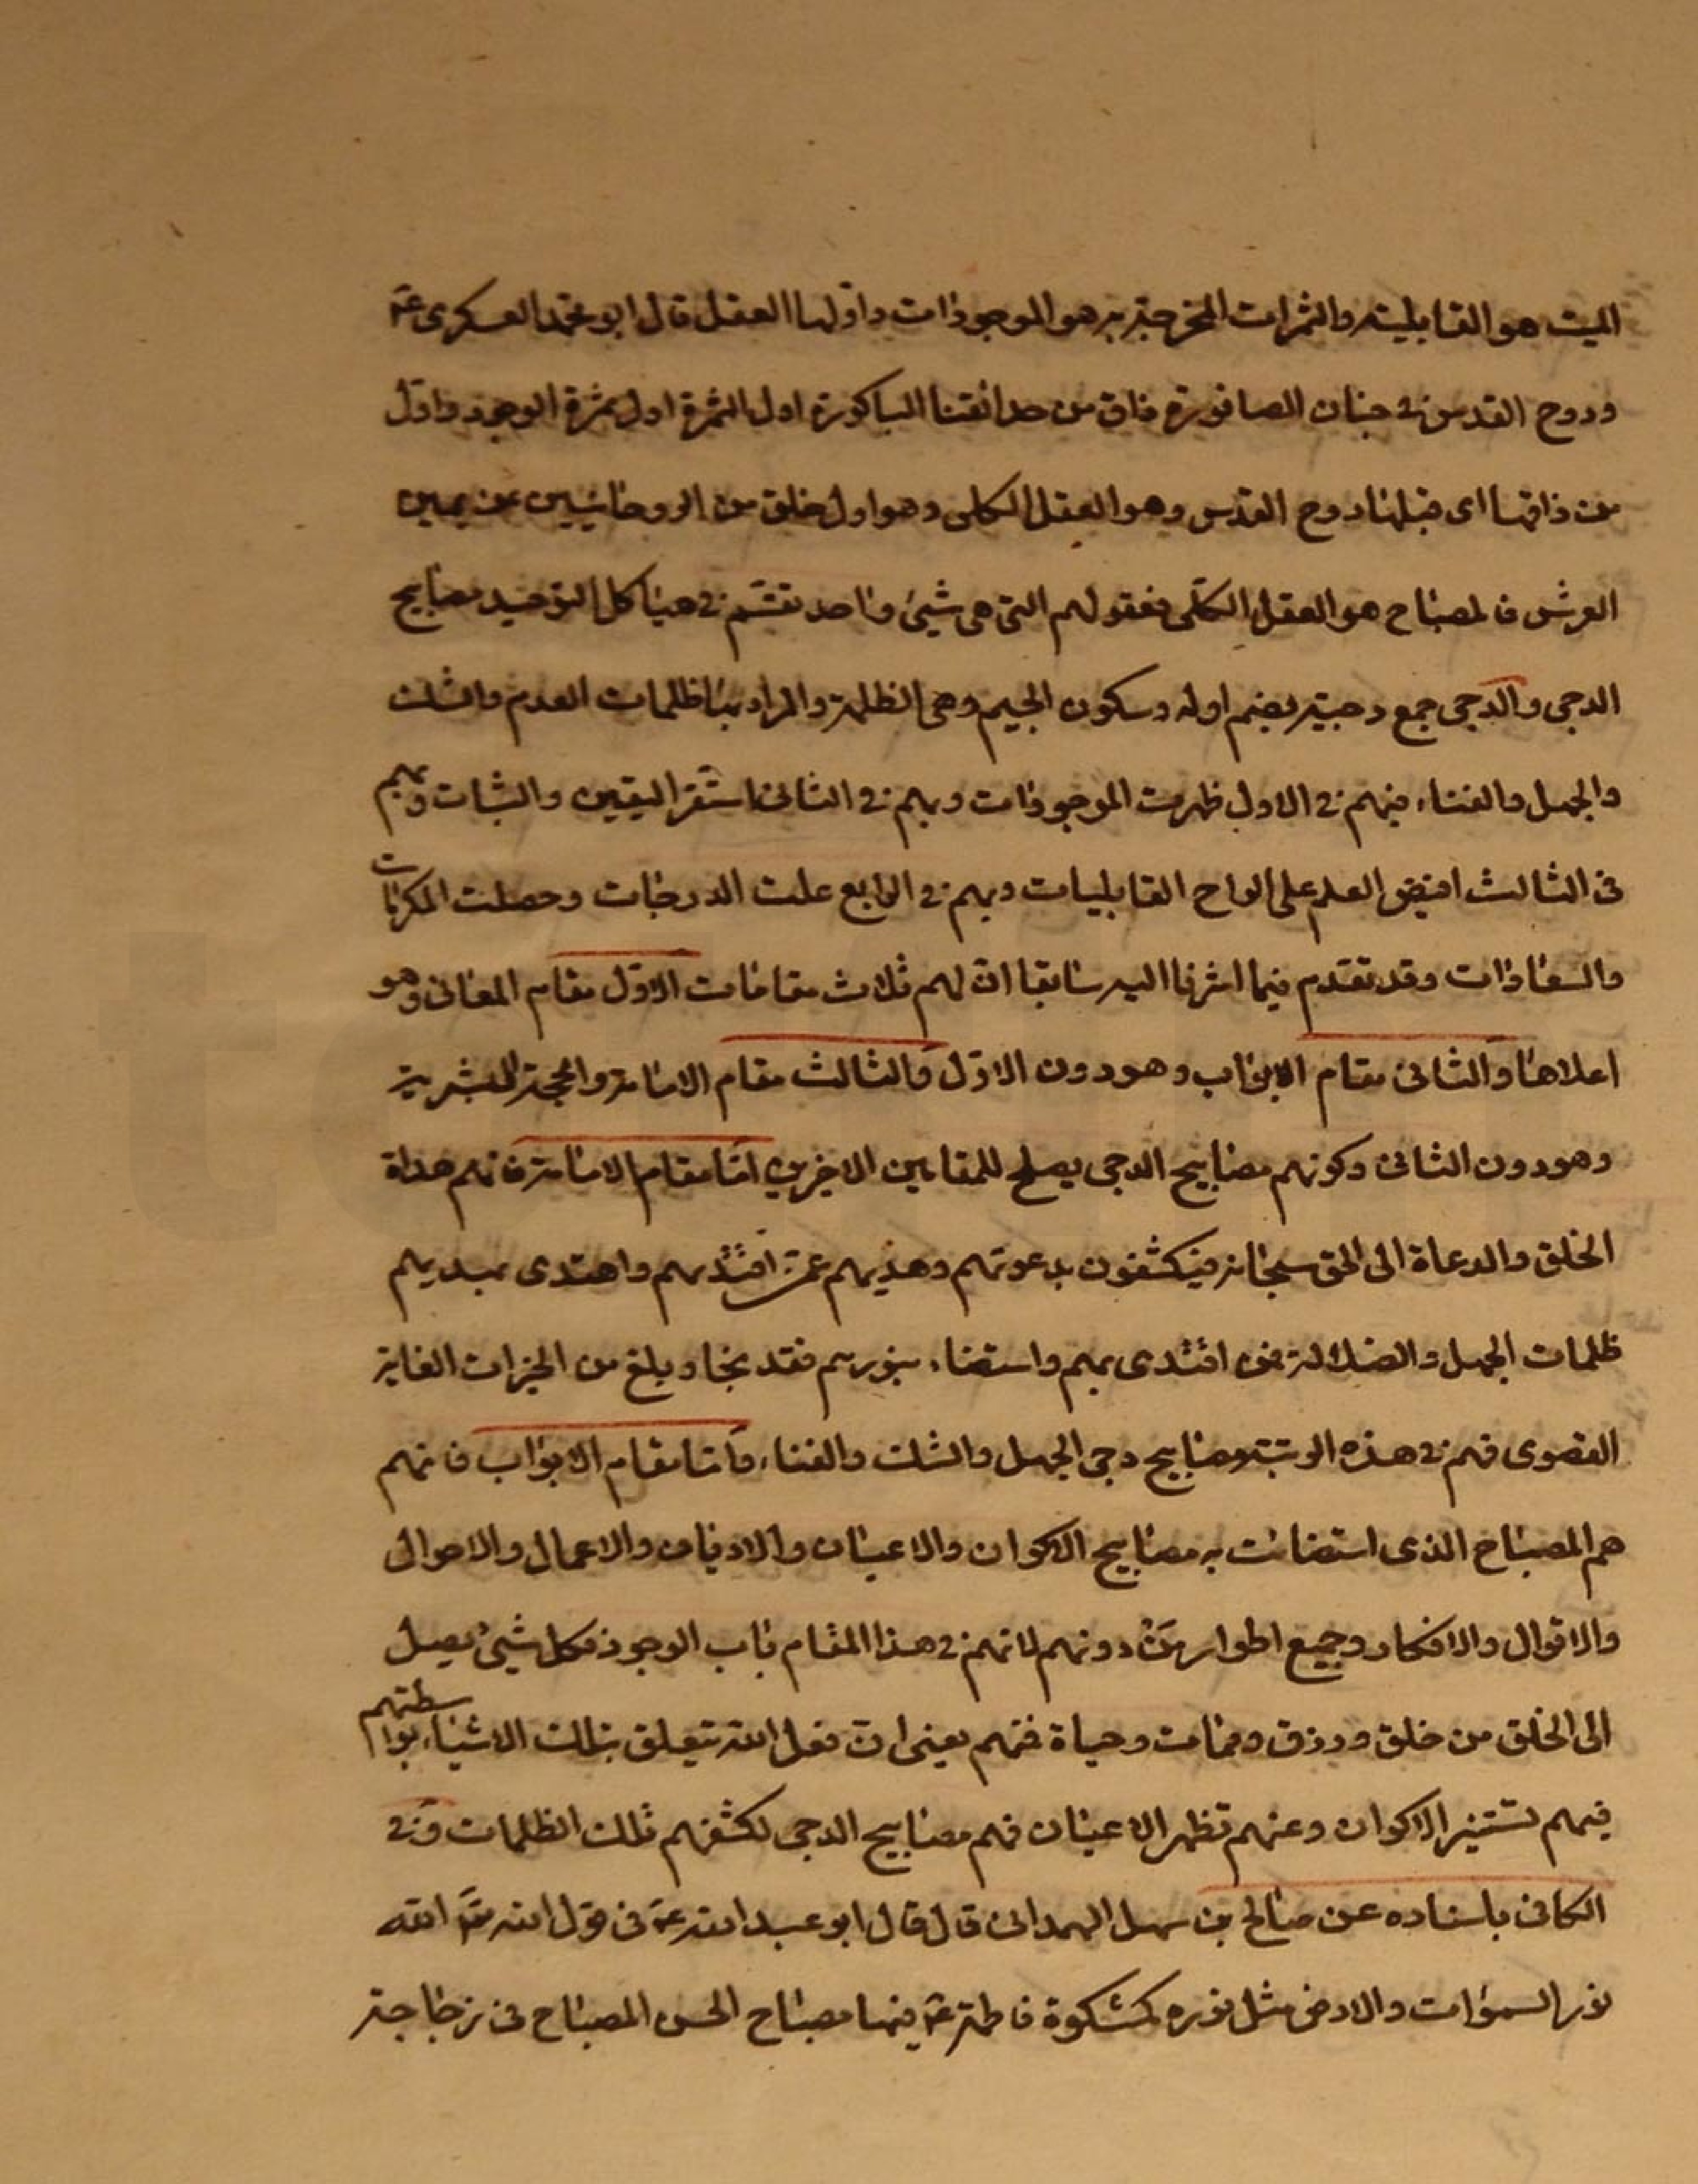 الميت هو القابلية والثمرات المخرجة به هو الموجودات واولها العقل قال ابو محمد العسكرى ع
وروح القدس فى جنان الصاقورة ذاق من حدائقنا الباكورة اول الثمرة اول ثمرة الوجود واول
من ذاقها اى قبلها روح القدس وهو العقل الكلى وهو اول خلق من الروحانيين عن يمين
العرش فالمصباح هو العقل الكلى فعقولهم التى هى شيئ واحد تقسّم فى هياكل التوحيد مصابيح
الدجى والدجى جمع دجية بضم اوله وسكون الجيم وهى الظلمة والمراد بها ظلمات العدم والشك
والجهل والفناء فبهم فى الاول ظهرت الموجودات وبهم فى الثانى استقر اليقين والثبات وبهم
فى الثالث افيض العلم على الواح القابليات وبهم فى الرابع علت الدرجات وحصلت المكرمات
والسعادات وقد تقدم فيما اشرنا اليه سابقا انّ لهم ثلاث مقامات الاوّل مقام المعانى وهو
اعلاها والثانى مقام الابواب وهو دون الاوّل والثالث مقام الامامة والحجة البشرية
وهو دون الثانى وكونهم مصابيح الدجى يصلح للمقامين الاخيرين امّا مقام الامامة فانهم هداة
الخلق والدعاة الى الحق سبحانه فيكشفون بدعوتهم وهديهم عمن اقتدى بهم واهتدى بهديهم
ظلمات الجهل والضلالة فمن اقتدى بهم واستضاء بنورهم فقد نجا وبلغ من الخيرات الغاية
القصوى فهم فى هذه الرتبة مصابيح دجى الجهل والشك والفناء وامّا مقام الابواب فانهم
هم المصباح الذى استضائت به مصابيح الاكوان والاعيان والاديان والاعمال والاحوال
والاقوال والافكار وجميع اطوار من دونهم لانهم فى هذا المقام باب الوجود فكل شيئ يصل
الى الخلق من خلق ورزق وممات وحياة فبهم يعنى انّ فعل الله تتعلق بتلك الاشياء بواسطتهم
فبهم تستنير الاكوان وعنهم تظهر الاعيان فهم مصابيح الدجى لكشفهم تلك الظلمات وفى
الكافى باسناده عن صالح بن سهل الهمدانى قال قال ابو عبد الله ع فى قول الله تعالى الله
نور السموات والارض مثل نوره كمشكوة فاطمة ع فيها مصباح الحسن المصباح فى زجاجة